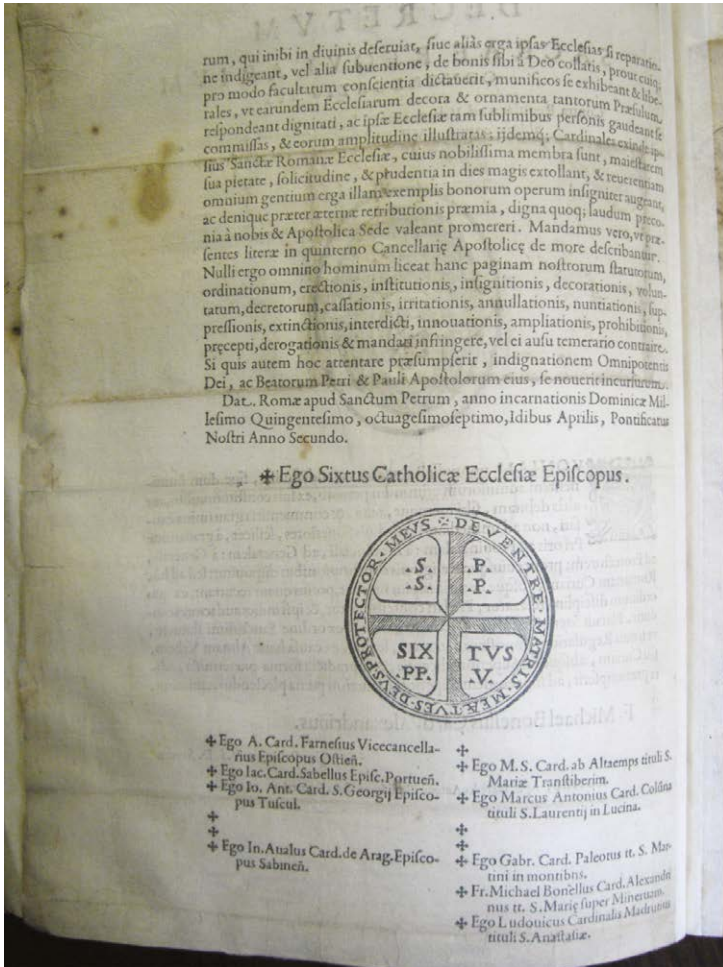 rum, qui inibi in diuinis deseruiat, siue aliàs erga ipsas Ecclesias si reparatio-
ne indigeant, vel alia subuentione, de bonis sibi à Deo collatis, prout cuiq;
pro modo facultatum conscientia dictauerit, munificos se exhibeant & libe-
rales, vt earundem Ecclesiarum decora & ornamenta tantorum Præsulum,
respondeant dignitati, ac ipsæ Ecclesiæ tam sublimibus personis gaudeant se
commissas, & eorum amplitudine illustratas: ijdemq; Cardinales exinde ip-
sius Sanctæ Romanæ Ecclesiæ, cuius nobilissima membra sunt, maiestatem
sua pietate, solicitudine, & prudentia in dies magis extollant, & reuerentiam
omnium gentium erga illam exemplis bonorum operum insigniter augeant,
ac denique præter æternæ retributionis præmia, digna quoq; laudum præco-
nia à nobis & Apostolica Sede valeant promereri. Mandamus vero, vt præ-
sentes literæ in quinterno Cancellarię Apostolicę de more describantur.
Nulli ergo omnino hominum liceat hanc paginam nostrorum statutorum,
ordinationum, erectionis, institutionis, insignitionis, decorationis, volun-
tatum, decretorum, cassationis, irritationis, annullationis, nuntiationis, sup-
pressionis, extinctionis, interdicti, innouationis, ampliationis, prohibitionis,
pręcepti, derogationis & mandati infringere, vel ei ausu temerario contraire.
Si quis autem hoc attentare præsumpserit, indignationem Omnipotentis
Dei, ac Beatorum Petri & Pauli Apostolorum eius, se nouerit incursurum.
Dat. Romæ apud Sanctum Petrum, anno incarnationis Dominicæ Mil-
lesimo Quingentesimo, octuagesimoseptimo, Idibus Aprilis, Pontificatus
Nostri Anno Secundo.
✠ Ego Sixtus Catholicæ Ecclesiæ Episcopus.
✠ DE VENTRE MATRIS MEÆ TV ES DEVS PROTECTOR MEVS
.S. .P.
.S. .P.
SIX TVS
.PP. .V.
✠ Ego A. Card. Farnesius Vicecancella-
rius Episcopus Ostieñ.
✠ Ego Iac. Card. Sabellus Episc. Portueñ.
✠ Ego Io. Ant. Card. S. Georgij Episco-
pus Tuscul.
✠
✠
✠ Ego In. Aualus Card. de Arag. Episco-
pus Sabineñ.
✠
✠ Ego M. S. Card. ab Altaemps tituli S.
Mariæ Transtiberim.
✠ Ego Marcus Antonius Card. Colūna
tituli S. Laurentij in Lucina.
✠
✠
✠ Ego Gabr. Card. Paleotus tt. S. Mar-
tini in montibns.
✠ Fr. Michael Bonellus Card. Alexandri
nus tt. S. Marię super Mineruam.
✠ Ego Ludouicus Cardinalis Madrutius
tituli S. Anastasiæ.